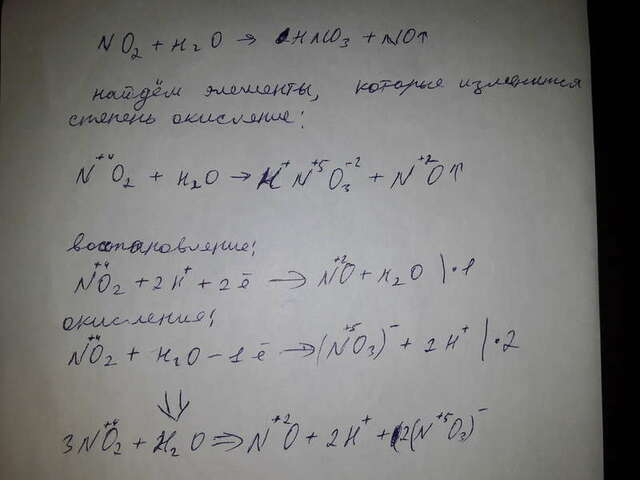 NO₂ + H₂O → HNO₃ + NO↑
найдём элементы, которые изменится
степень окисление:
N⁺⁴O₂ + H₂O → H⁺N⁺⁵O₃⁻² + N⁺²O↑
восстановление:
N⁺⁴O₂ + 2H⁺ + 2ē → N⁺²O + H₂O |·1
окисления:
N⁺⁴O₂ + H₂O - 1ē → (N⁺⁵O₃)⁻ + 2H⁺ |·2
⇓
3N⁺⁴O₂ + H₂O ⇒ N⁺²O + 2H⁺ + 2(N⁺⁵O₃)⁻